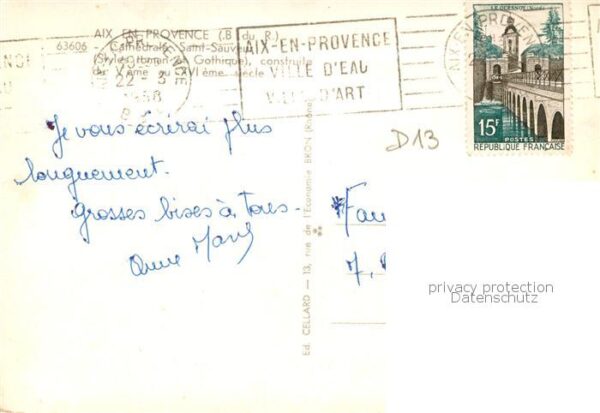 AIX EN PROVENCE (B. du R.)
63606 - Cathédrale Saint-Sauveur
(Styles roman et Gothique), construite
du Vème au XVIème siècle
22 - 3
1958
AIX-EN-PROVENCE
VILLE D'EAU
VILLE D'ART
LE QUESNOY (Nord)
15F
POSTES
REPUBLIQUE FRANÇAISE
D13
Je vous écrirai plus
longuement.
Grosses bises à tous.
Anne Mary
Ed. CELLARD - 13, rue de l'Economie BRON (Rhône)
Fam
7,
privacy protection
Datenschutz